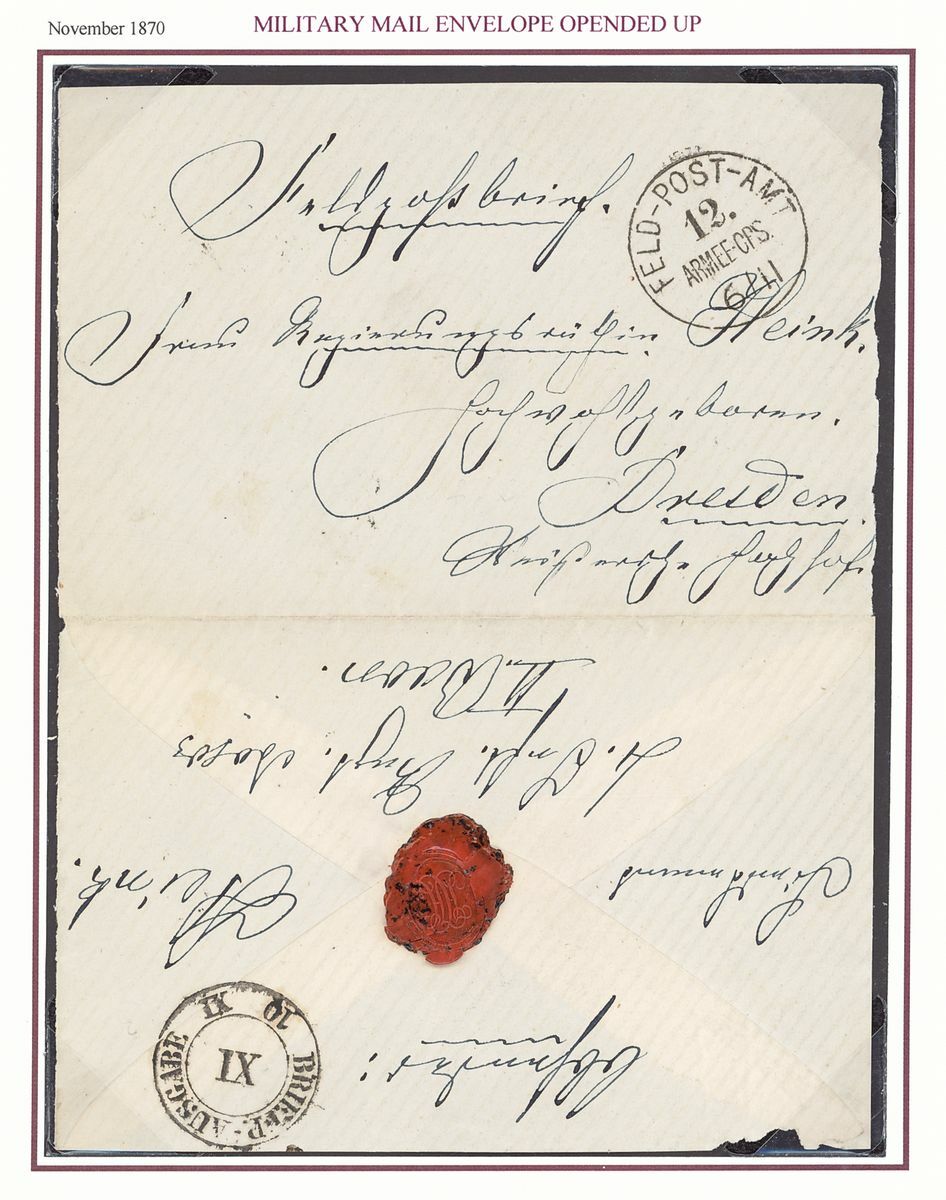 November 1870
MILITARY MAIL ENVELOPE OPENDED UP
Feldpostbrief.
FELD-POST-AMT
12.
ARMEE-CPS.
6 11
Frau Regierungsräthin Heink.
Hochwohlgeboren.
Dresden.
Meißnerstr.
Absender:
Lieutenant Heink.
BRIEF-AUSGABE
10 XI
IX